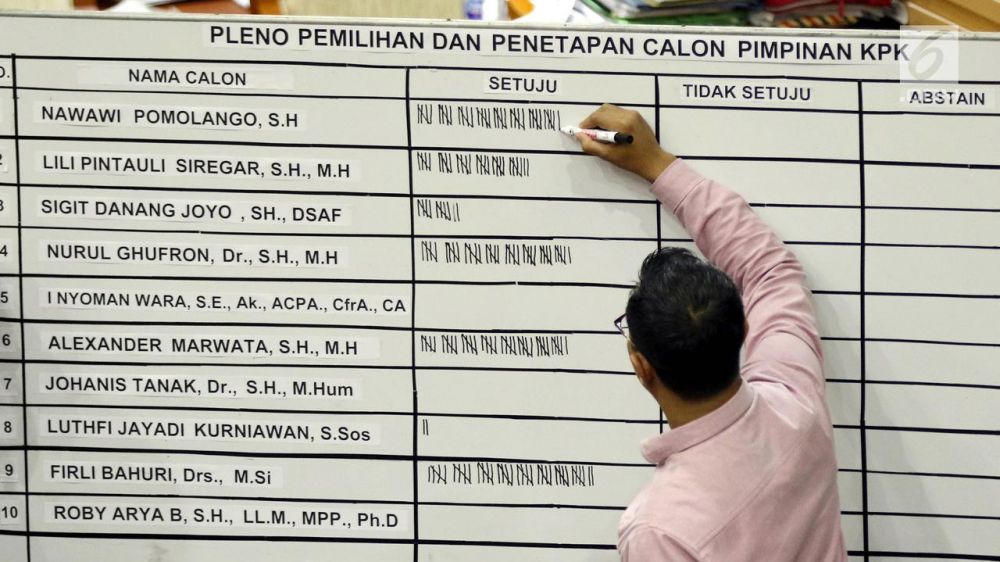 PLENO PEMILIHAN DAN PENETAPAN CALON PIMPINAN KPK
NAMA CALON SETUJU TIDAK SETUJU ABSTAIN
NAWAWI POMOLANGO, S.H
2 LILI PINTAULI SIREGAR, S.H., M.H
3 SIGIT DANANG JOYO , SH., DSAF
4 NURUL GHUFRON, Dr., S.H., M.H
5 I NYOMAN WARA, S.E., Ak., ACPA., CfrA., CA
6 ALEXANDER MARWATA, S.H., M.H
7 JOHANIS TANAK, Dr., S.H., M.Hum
8 LUTHFI JAYADI KURNIAWAN, S.Sos
9 FIRLI BAHURI, Drs., M.Si
10 ROBY ARYA B, S.H., LL.M., MPP., Ph.D